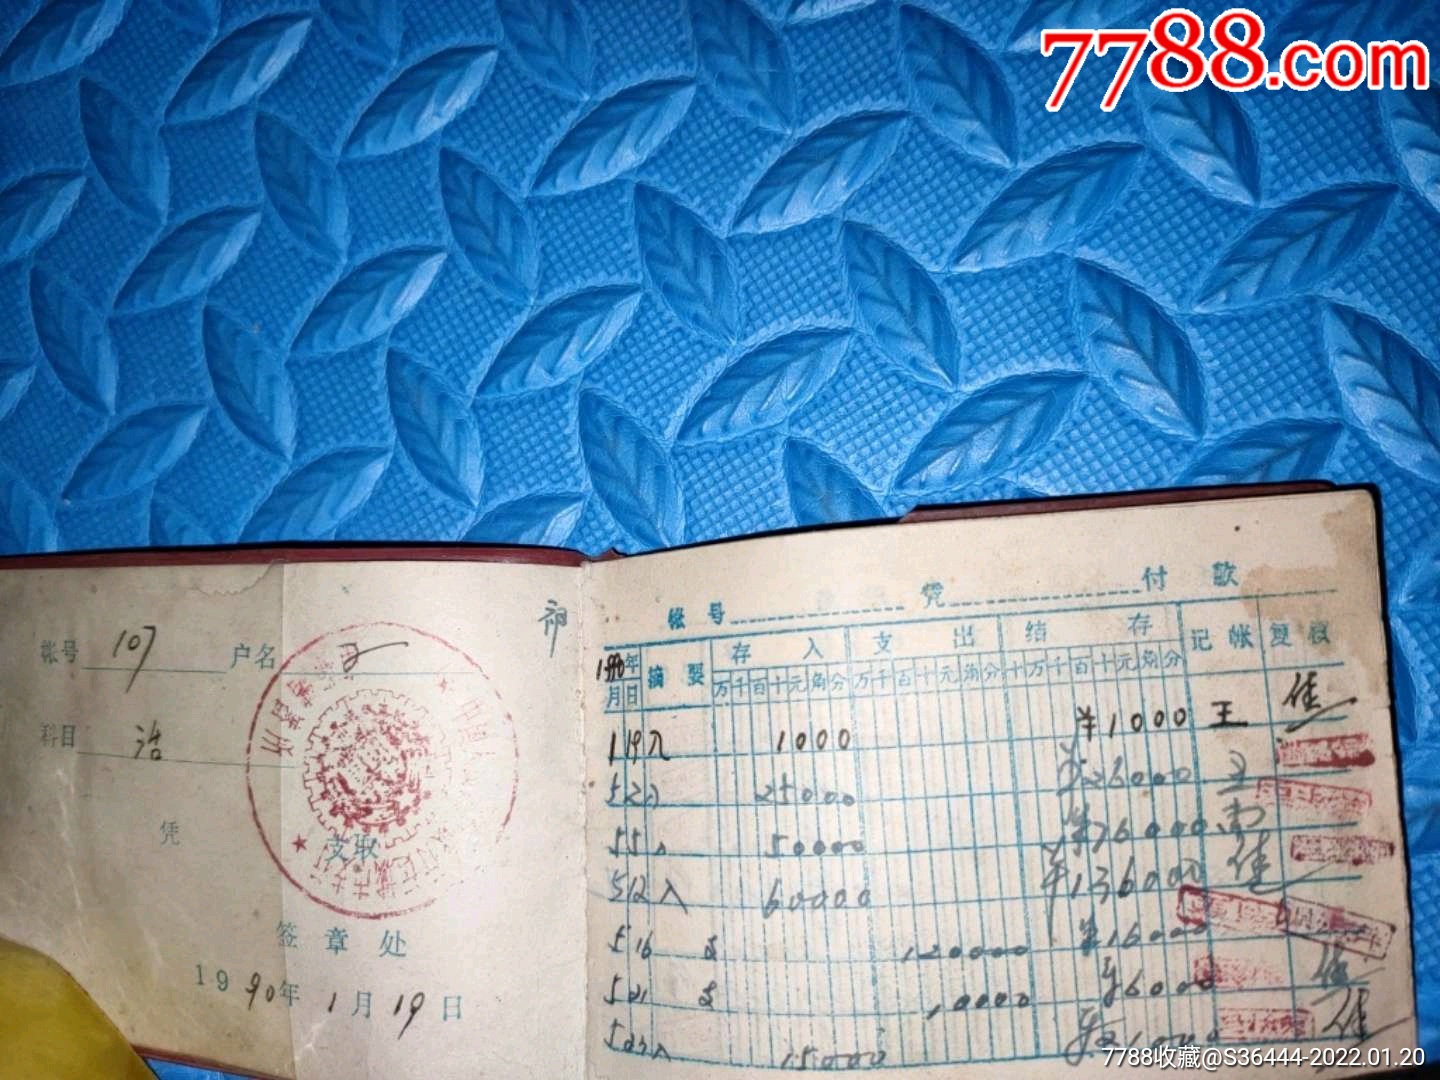 7788.com
帐号 107 户名
科目 活
凭
支取
签章处
1990年1月19日
帐号 凭 付款
1990年 摘要 存入 支出 结存 记帐 复核
月日 万千百十元角分 万千百十元角分 十万千百十元角分
1 19 入 1000 ¥1000 王 佳
5 2 入 25000 ¥26000 王
5 5 入 50000 ¥76000
5 12 入 60000 ¥136000 佳
5 16 支 120000 ¥16000
5 21 支 10000 ¥6000 佳
入 15000 佳
7788收藏@S36444-2022.01.20